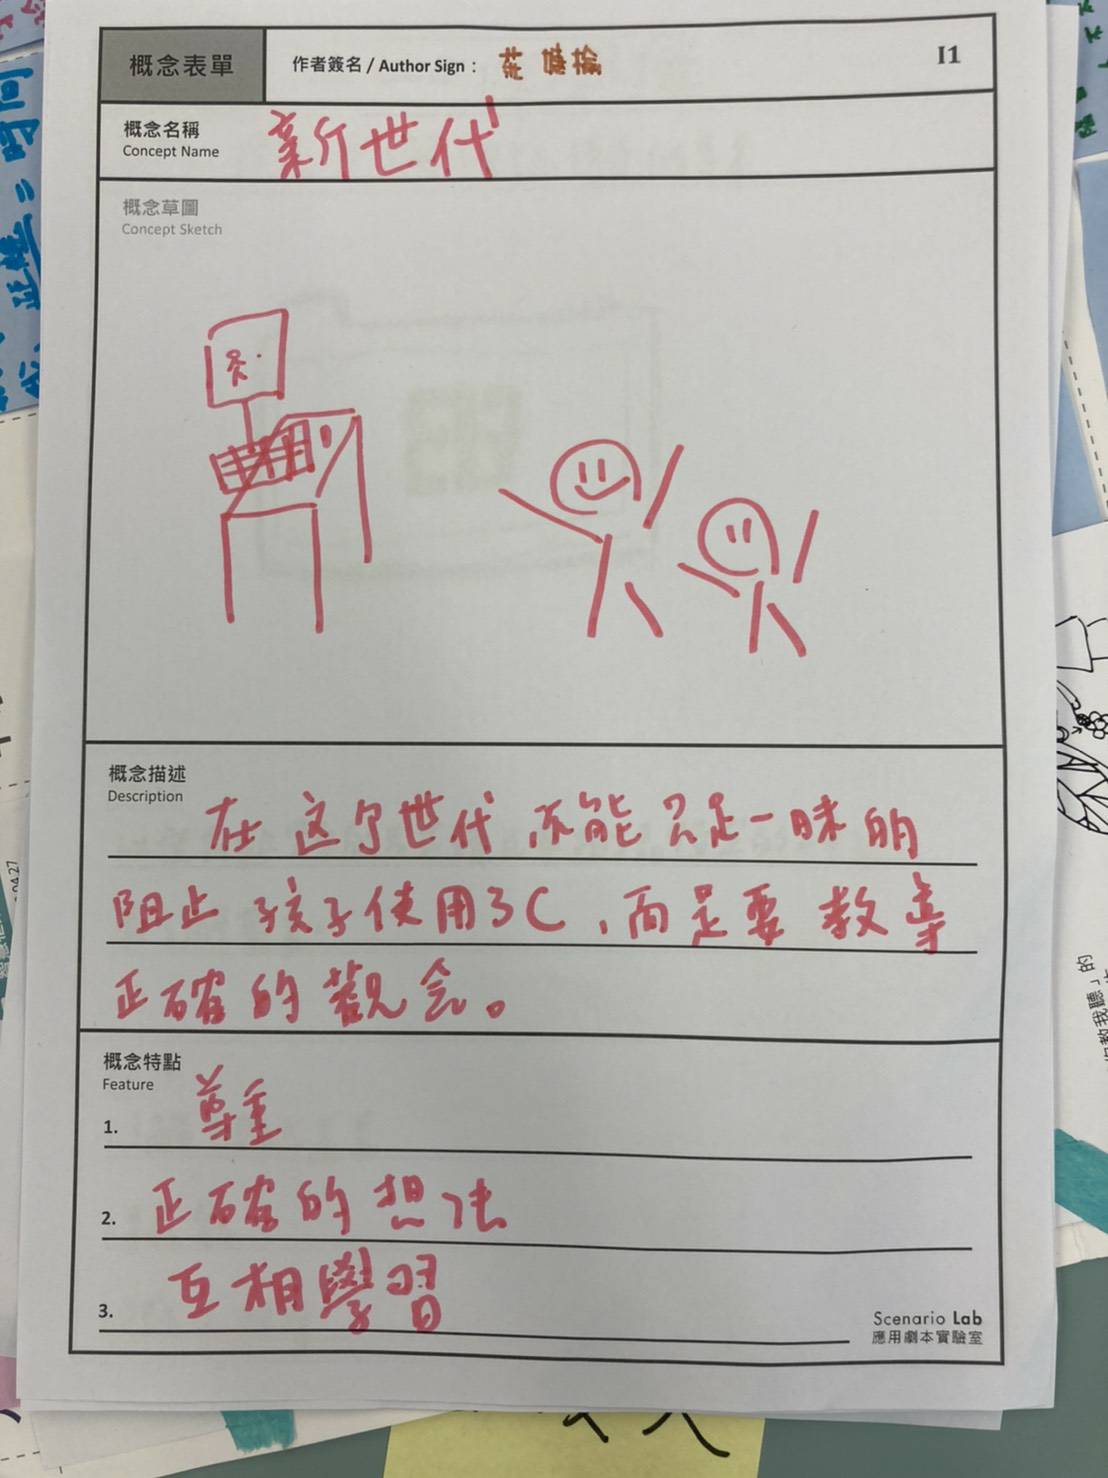 概念表單
作者簽名 / Author Sign：
I1
概念名稱
Concept Name
新世代
概念草圖
Concept Sketch
概念描述
Description
在这个世代,不能只是一昧的
阻止孩子使用3C,而是要教導
正確的觀念。
概念特點
Feature
1. 尊重
2. 正確的想法
3. 互相學習
Scenario Lab
應用劇本實驗室